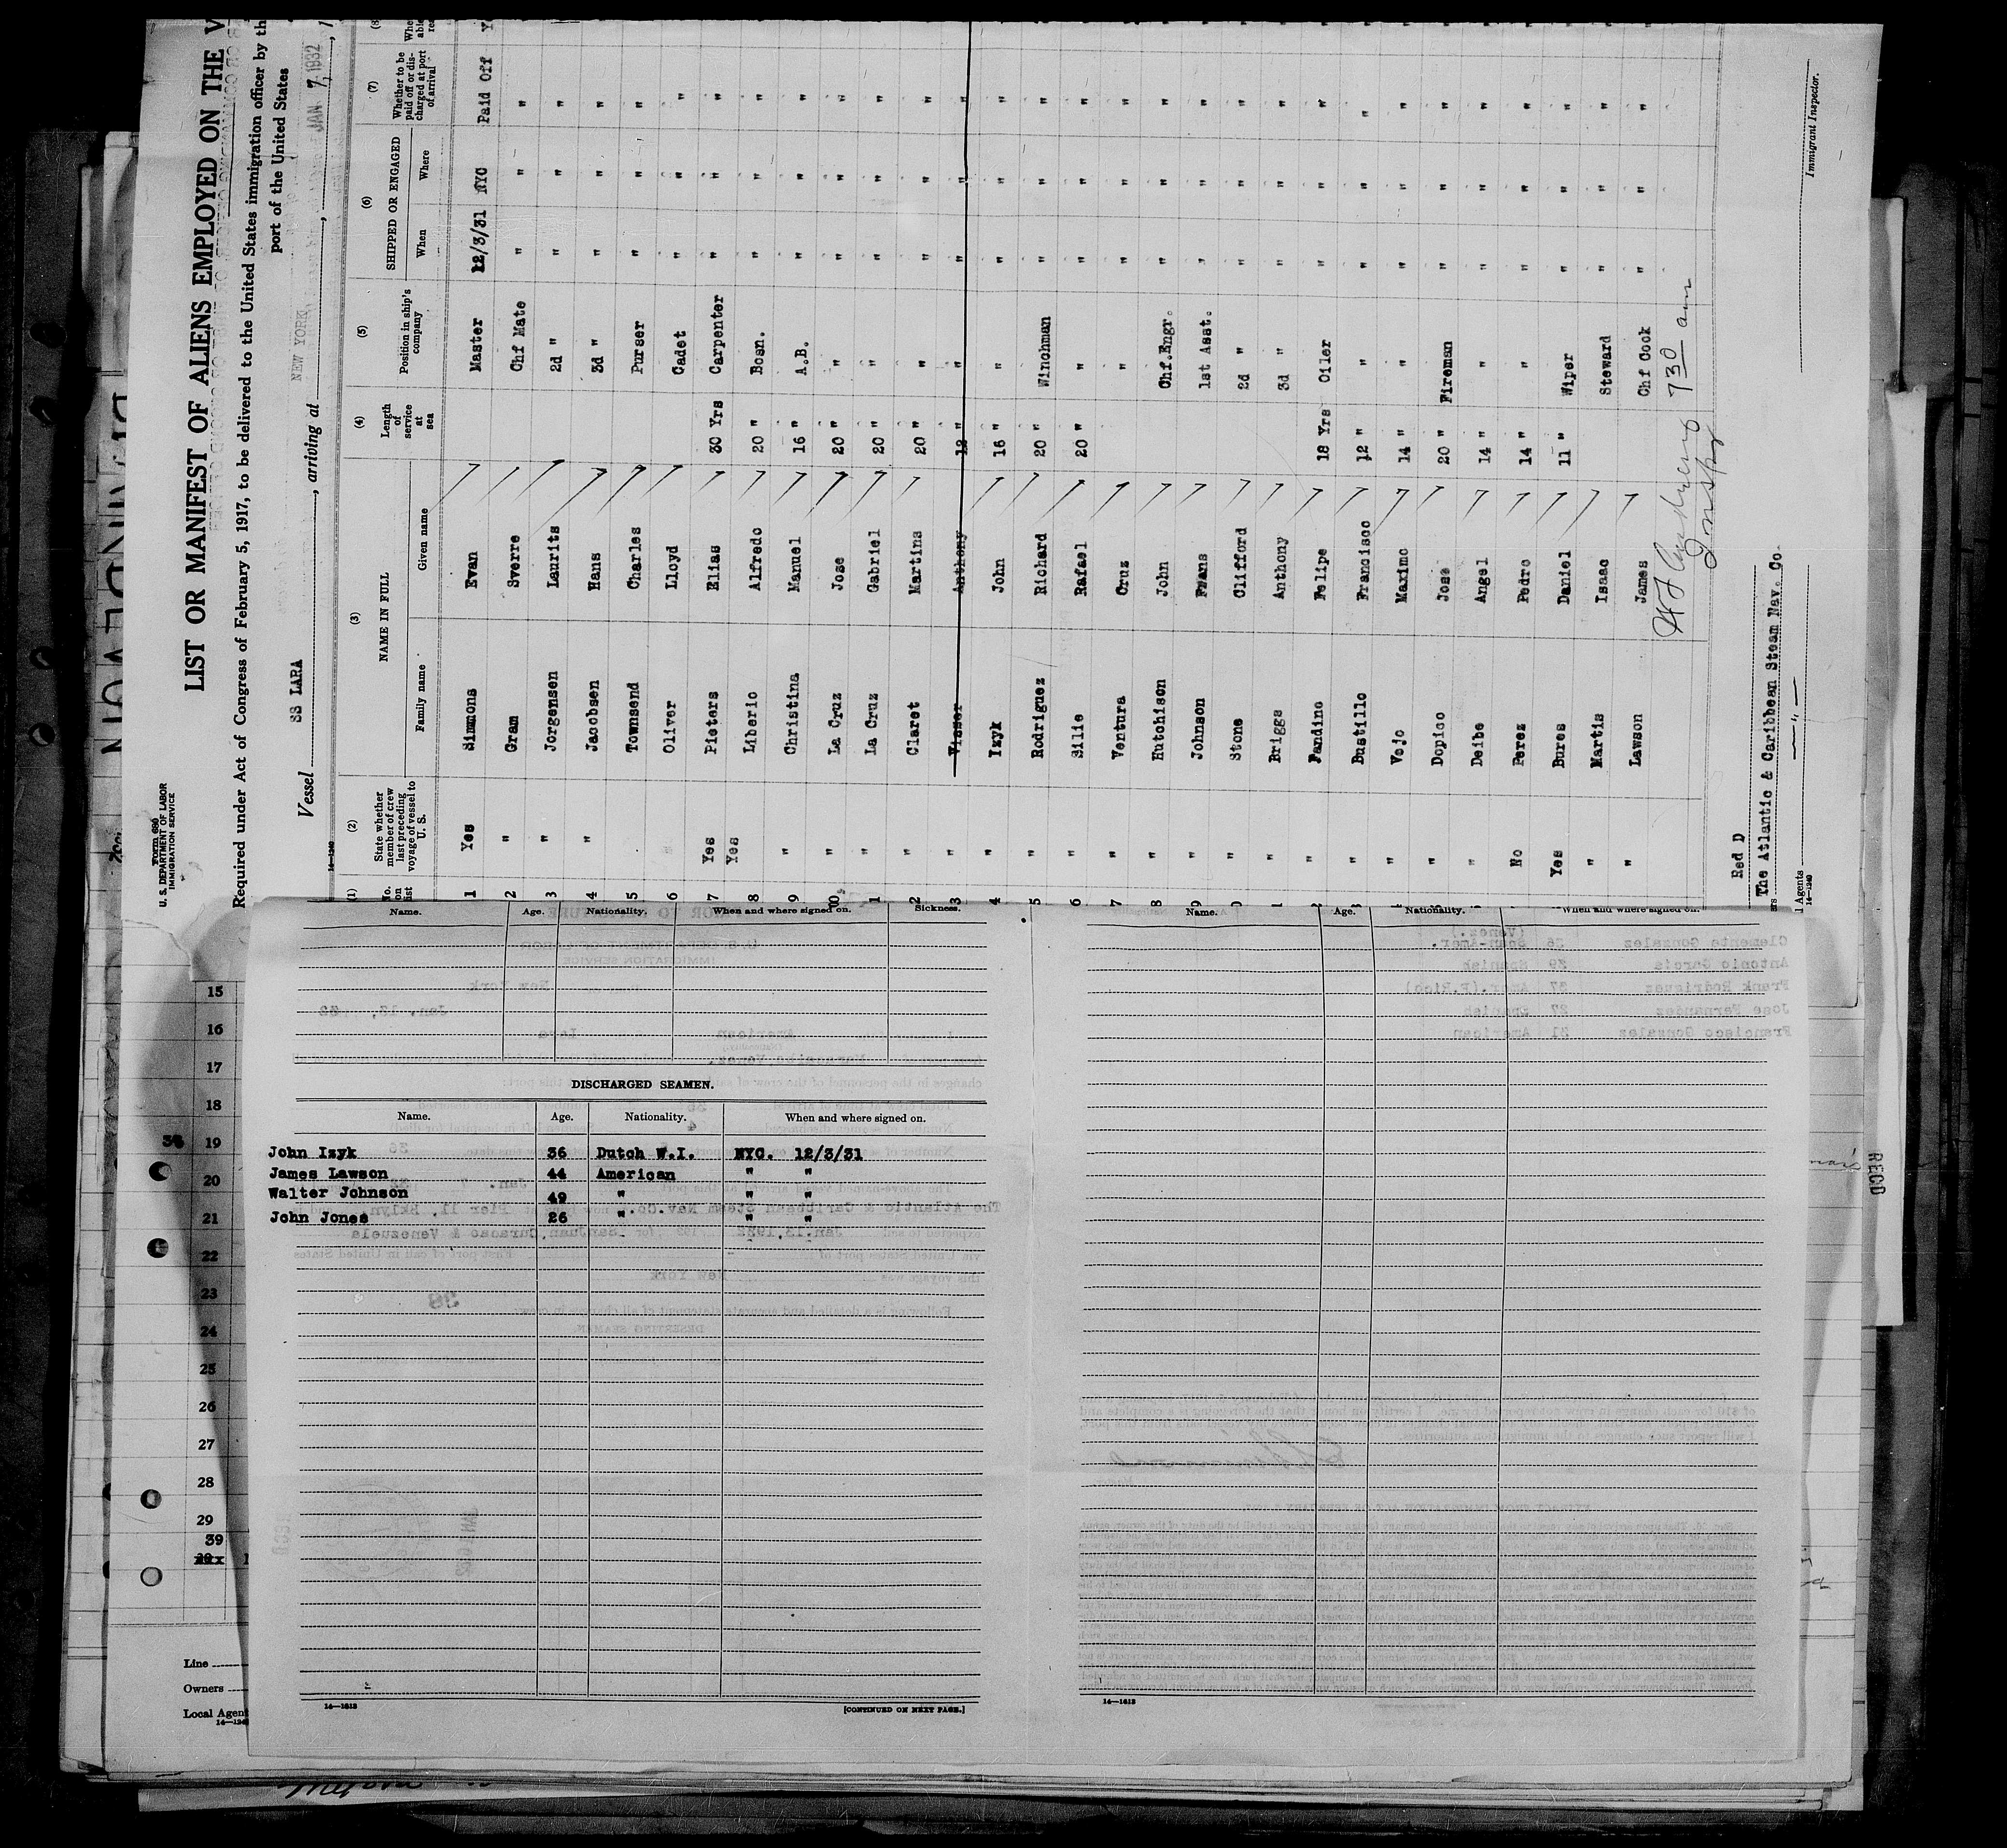 Form 680
U. S. DEPARTMENT OF LABOR
IMMIGRATION SERVICE
LIST OR MANIFEST OF ALIENS EMPLOYED ON THE V
Required under Act of Congress of February 5, 1917, to be delivered to the United States immigration officer by th
port of the United States
Vessel SS LARA, arriving at NEW YORK, JAN 7, 1932, 1
14—1240
(1) (2) (3) (4) (5) (6) (7) (8)
No. on list
State whether member of crew last preceding voyage of vessel to U. S.
NAME IN FULL
Family name Given name
Length of service at sea
Position in ship's company
SHIPPED OR ENGAGED
When Where
Whether to be paid off or discharged at port of arrival
1 Yes Simmons Evan Master 12/3/31 NYC Paid Off
2 " Gram Sverre Chf Mate " " "
3 " Jorgensen Laurits 2d " " " "
4 " Jacobsen Hans 3d " " " "
5 Townsend Charles Purser " " "
6 Oliver Lloyd Cadet " " "
7 Yes Pieters Elias 30 Yrs Carpenter " " "
8 Yes Liberic Alfredo 20 " Bosn. " " "
9 " Christina Manuel 16 " A.B. " " "
0 " La Cruz Jose 20 " " " " "
1 " La Cruz Gabriel 20 " " " " "
2 " Claret Martins 20 " " " " "
3 " Visser Anthony 12 " " " " "
4 " Izyk John 16 " " " " "
5 " Rodriguez Richard 20 " Winchman " " "
6 " Silie Rafael 20 " " " " "
7 " Ventura Cruz " " " "
8 " Hutchison John Chf.Engr. " " "
9 " Johnson Frans 1st Asst. " " "
0 " Stone Clifford 2d " " " "
1 " Briggs Anthony 3d " " " "
2 " Fandino Felipe 18 Yrs Oiler " " "
3 " Bustillo Francisco 12 " " " " "
4 " Vejo Maximo 14 " " " " "
5 " Dopico Jose 20 " Fireman " " "
6 " Deibe Angel 14 " " " " "
7 No Perez Pedro 14 " " " " "
8 Yes Bures Daniel 11 " Wiper " " "
9 " Martis Isaac Steward " " "
" Lawson James Chf Cook " " "
7 30 am
Red D
The Atlantic & Caribbean Steam Nav. Co.
l Agents
14—1240
Immigrant Inspector.
Name. Age. Nationality. When and where signed on. Sickness.
Name. Age. Nationality. When and where signed on.
DISCHARGED SEAMEN.
Name. Age. Nationality. When and where signed on.
John Izyk 36 Dutch W.I. NYC. 12/3/31
James Lawson 44 American " "
Walter Johnson 49 " " "
John Jones 26 " " "
14—1613
[CONTINUED ON NEXT PAGE.]
14—1613
15
16
17
18
19
20
21
22
23
24
25
26
27
28
29
39
Line
Owners
Local Agent
14—1240
RECD